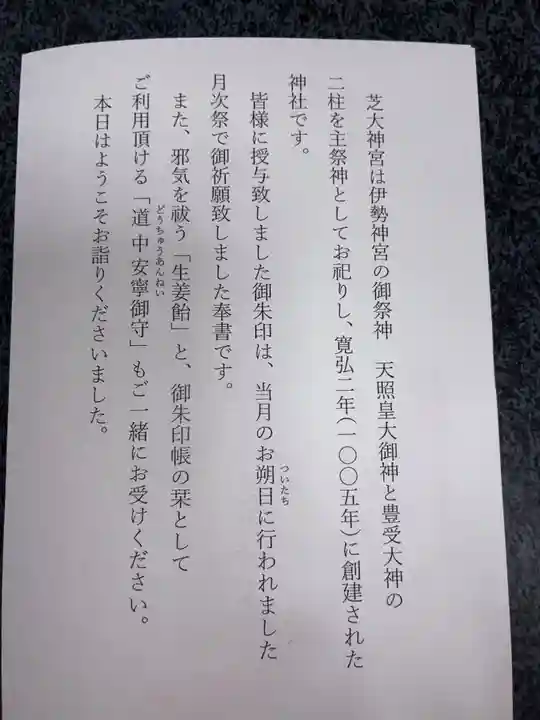 芝大神宮は伊勢神宮の御祭神　天照皇大御神と豊受大神の
二柱を主祭神としてお祀りし、寛弘二年(一〇〇五年)に創建された
神社です。
皆様に授与致しました御朱印は、当月のお朔日に行われました
ついたち
月次祭で御祈願致しました奉書です。
また、邪気を祓う「生姜飴」と、御朱印帳の栞として
ご利用頂ける「道中安寧御守」もご一緒にお受けください。
どうちゅうあんねい
本日はようこそお詣りくださいました。